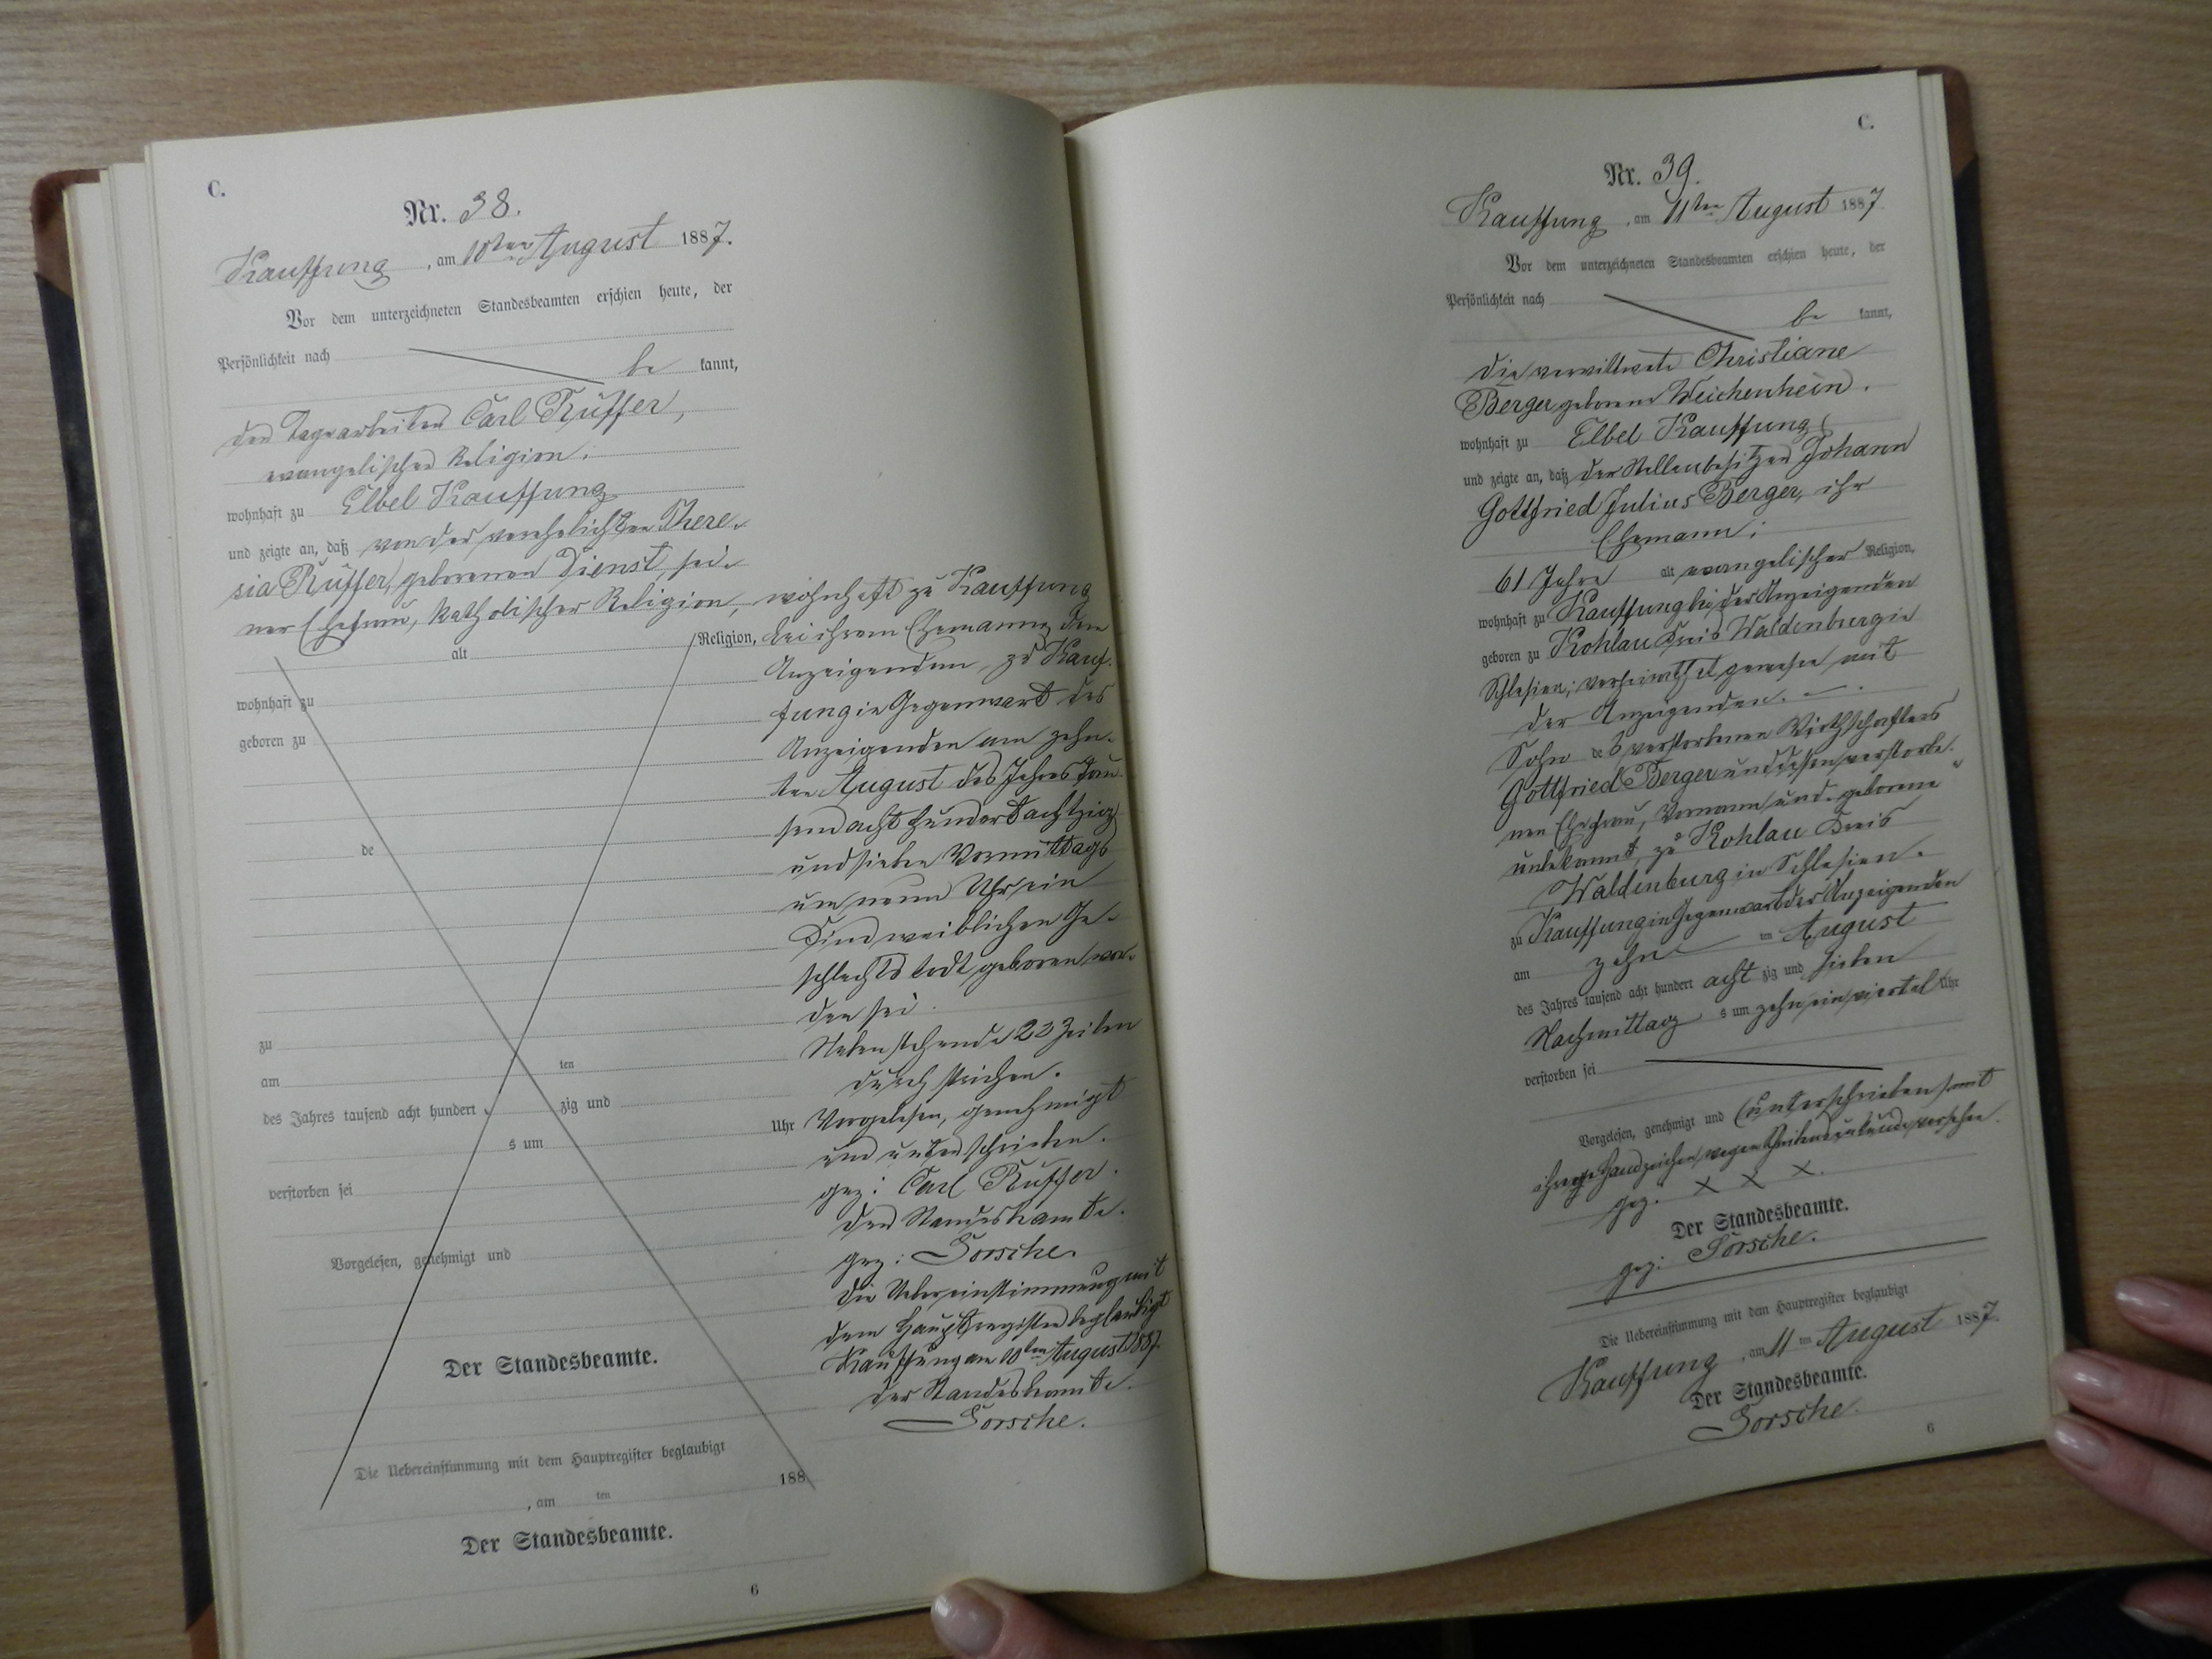 C.
Nr. 38.
Kauffung, am 10ten August 1887.
Vor dem unterzeichneten Standesbeamten erschien heute, der
Persönlichkeit nach
be kannt,
der Tagearbeiter Carl Rüffer,
evangelischer Religion,
wohnhaft zu Elbel Kauffung
und zeigte an, daß von der verehelichten There-
sia Rüffer, geborenen Dienst, sei-
ner Ehefrau, katholischer Religion,
alt Religion,
wohnhaft zu
geboren zu
de
zu
am ten
des Jahres tausend acht hundert zig und
s um Uhr
verstorben sei
Vorgelesen, genehmigt und
Der Standesbeamte.
Die Uebereinstimmung mit dem Hauptregister beglaubigt
, am ten 188
Der Standesbeamte.
6
wohnhaft zu Kauffung
bei ihrem Ehemanne dem
Anzeigenden, zu Kauf-
fung in Gegenwart des
Anzeigenden am zehn-
ten August des Jahres tau-
send acht hundert achtzig
und sieben Vormittags
um neun Uhr ein
Kind weiblichen Ge-
schlechts todt geboren wor-
den sei.
Nebenstehende 22 Zeilen
durchstrichen.
Vorgelesen, genehmigt
und unterschrieben.
gez: Carl Rüffer.
Der Standesbeamte.
gez: Sorsche.
Die Uebereinstimmung mit
dem Hauptregister beglaubigt
Kauffung am 10ten August 1887.
Der Standesbeamte.
Sorsche.
C.
Nr. 39.
Kauffung, am 11ten August 1887.
Vor dem unterzeichneten Standesbeamten erschien heute, der
Persönlichkeit nach
be kannt,
die verwittwete Christiane
Berger geborene Weichenhein.
wohnhaft zu Elbel Kauffung
und zeigte an, daß der Stellenbesitzer Johann
Gottfried Julius Berger, ihr
Ehemann;
61 Jahre alt evangelischer Religion,
wohnhaft zu Kauffung bei der Anzeigenden
geboren zu Kohlau Kreis Waldenburg in
Schlesien; verheirathet gewesen mit
der Anzeigenden.
Sohn des verstorbenen Wirthschafters
Gottfried Berger und dessen verstorbe-
nen Ehefrau, Vorname und geborene
unbekannt, zu Kohlau Kreis
Waldenburg in Schlesien.
zu Kauffung in Gegenwart der Anzeigenden
am zehn ten August
des Jahres tausend acht hundert acht zig und sieben
Nachmittag s um zehn ein viertel Uhr
verstorben sei
Vorgelesen, genehmigt und (unterschrieben) mit
Handzeichen wegen versehen.
gez. X X X.
Der Standesbeamte.
gez: Sorsche.
Die Uebereinstimmung mit dem Hauptregister beglaubigt
Kauffung, am 11 ten August 1887.
Der Standesbeamte.
Sorsche.
6